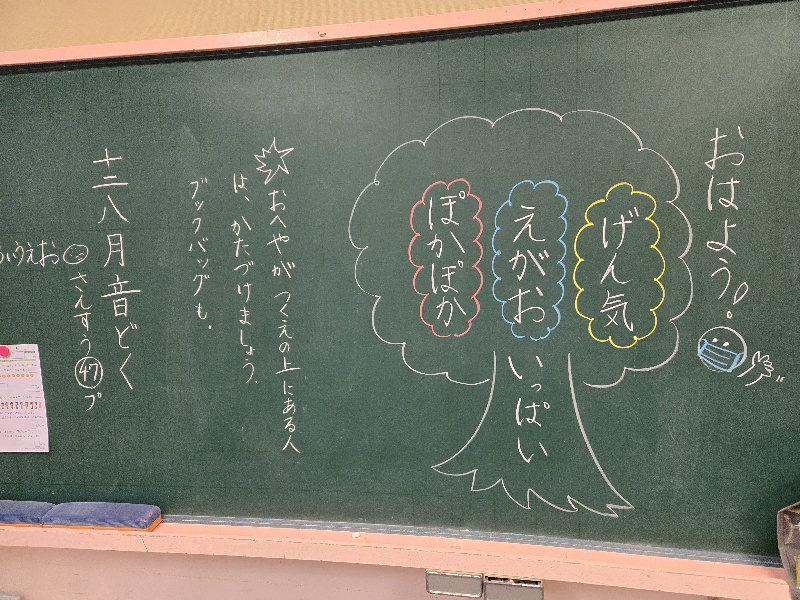 おはよう!
げん気
えがお
ぽかぽか
いっぱい
おへやが つくえの上にある人
は、かたづけましょう。
ブックバッグも。
十二八月音どく
さんすう㊼プ
いうえお